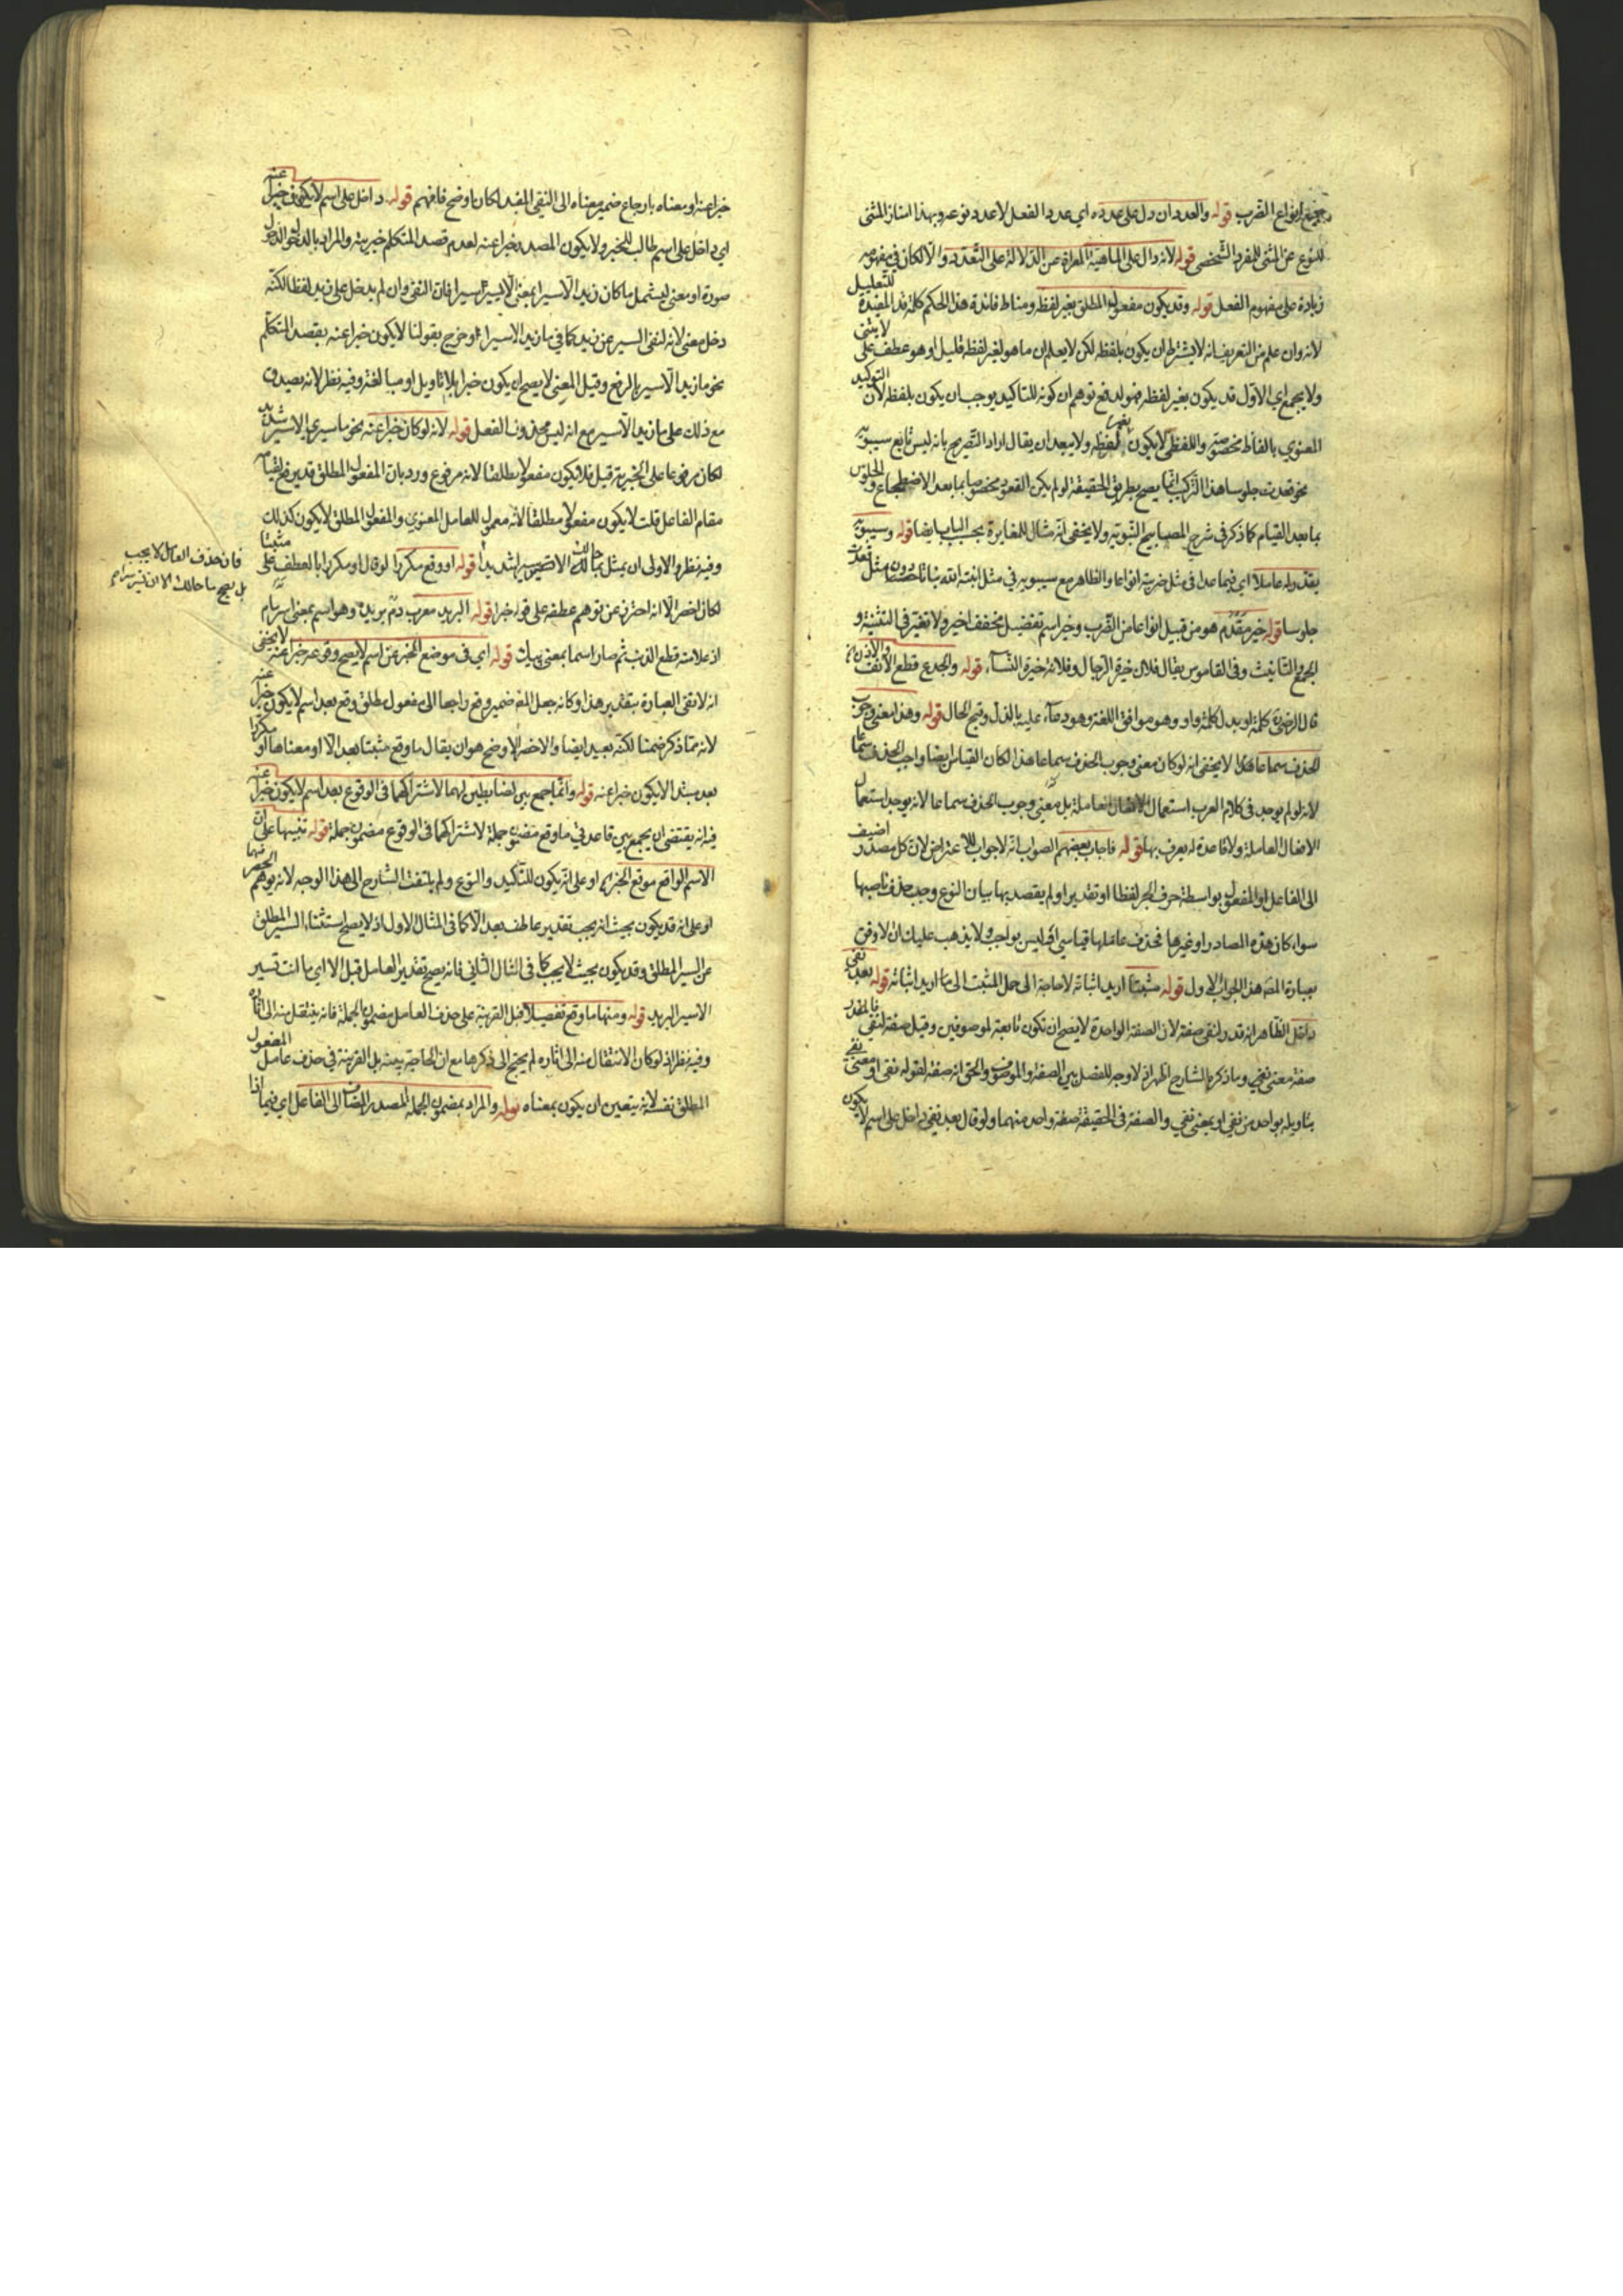 جميع انواع الضرب قوله والعدد ان دل على عدده اي عدد الفعل لا عدد نوعه وبهذا امتاز المثنى
للنوع عن المثنى للمفرد الشخصي قوله لانه دال على الماهية المعراة عن الدلالة على التعدد والا لكان في مفهومه
زيادة على مفهوم الفعل قوله وقد يكون مفعوله المطلق بغير لفظه ومناط فائدة هذا الحكم كلمة قد المفيدة للتعليل
لانه وان علم من التعريف انه لا يشترط ان يكون بلفظه لكن لا يعلم ان ما هو بغير لفظه قليل او هو عطف على لا يثنى
ولا يجمع اي الاول قد يكون بغير لفظه فهو لدفع توهم ان كونه للتاكيد يوجب ان يكون بلفظه لان التوكيد
المعنوي بالفاظ مخصوصة واللفظي لا يكون بلفظه ولا يبعد ان يقال اراد التصريح بانه ليس تابع سيبويه
نحو قعدت جلوسا هذا التركيب انما يصح بطريق الحقيقة لو لم يكن القعود مخصوصا بما بعد الاضطجاع والجلوس
بما بعد القيام كما ذكر في شرح المصابيح النبوية ولا يخفى انه مثال للمغايرة بحسب الباب ايضا قوله وسيبويه
يقدر له عاملا اي فيما عدا في مثل ضربته انواعا والظاهر مع سيبويه في مثل انبته الله نباتا حسنا دون مثل قعدت
جلوسا قوله خير مقدم هو من قبيل انواعا من الضرب وخير اسم تفضيل مخفف اخير ولا تغير في التثنية و
الجمع والتانيث وفي القاموس يقال فلان خيرة الرجال وفلانة خيرة النساء قوله والجدع قطع الانف والاذن
قال الرضي كلمة او بدل كلمة واو وهو موافق اللغة وهو دعاء عليه بالذل وقبح الحال قوله وهذا معنى وجوب
الحذف سماعا لا يخفى انه لو كان معنى وجوب الحذف سماعا هذا لكان القياس ايضا واجب الحذف سماعا
لانه لو لم يوجد في كلام العرب استعمال الافعال العاملة بل معنى وجوب الحذف سماعا لانه يوجد استعمال
الافعال العاملة ولا قاعدة له يعرف بها قوله فاجاب بعضهم الصواب انه لا جواب للاعتراض لان كل مصدر اضيف
الى الفاعل او المفعول بواسطة حرف الجر لفظا او تقديرا ولم يقصد بها بيان النوع وجب حذف ناصبها
سواء كان هذه المصادر او غيرها فحذف عاملها قياسي اي ليس بواجب ولا يذهب عليك ان الاوفق
بعبارة المصه هذا الجواب الاول قوله مثبتا اريد اثباته لا حاجة الى حمل المثبت الى ما اريد اثباته قوله بعد نفي
داخل الظاهر انه قدر لنفي صفة لان الصفة الواحدة لا يصح ان تكون تابعة لموصوفين وقيل صفة لنفي
صفة معنى نفي وما ذكره الشارح اظهر اذ لا وجه للفصل بين الصفة والموصوف والحق انه صفة لقوله نفي او معنى نفي
بتاويله بواحد من نفي او بمعنى نفي والصفة في الحقيقة صفة واحد منهما ولو قال بعد نفي داخل على اسم لا يكون
خبرا عنه او معناه بارجاع ضمير معناه الى النفي المقيد لكان اوضح فافهم قوله داخل على اسم لا يكون خبرا عنه
اي داخل على اسم طالب للخبر ولا يكون المصدر خبرا عنه لعدم قصد المتكلم خبريته والمراد بالدخول الدخول
صورة او معنى ليشمل ما كان زيد الا سيرا بمعنى الا يسير سيرا فان النفي وان لم يدخل على زيد لفظا لكنه
دخل معنى لانه لنفي السير عن زيد كما في ما زيد الا سيرا وخرج بقولنا لا يكون خبرا عنه بقصد المتكلم
نحو ما زيد الا سير بالرفع وقيل المعنى لا يصح ان يكون خبرا بلا تاويل او مبالغة وفيه نظر لانه يصدق
مع ذلك على ما زيد الا سير مع انه ليس محذوف الفعل قوله لانه لو كان خبرا عنه نحو ما سيري الا سير شديد
لكان مرفوعا على الخبرية قيل فلا يكون مفعولا مطلقا لانه مرفوع ورد بان المفعول المطلق قد يرفع لقيامه
مقام الفاعل قلت لا يكون مفعولا مطلقا لانه معمول للعامل المعنوي والمفعول المطلق لا يكون كذلك
وفيه نظر والاولى ان يمثل بما حالك الا سيرا شديدا قوله او وقع مكررا لو قال او مكررا بالعطف على مثبتا
لكان اخصر الا انه احترز عن توهم عطفه على قوله خبرا قوله البريد معرب دم بريده وهو اسم بمعنى
اذ علامته قطع الذنب ثم صار اسما بمعنى قوله اي في موضع الخبر عن اسم لا يصح وقوعه خبرا عنه لا يخفى
انه لا تفي العبارة بتقدير هذا وكانه جعل المصه ضمير وقع راجعا الى مفعول مطلق وقع بعد اسم لا يكون خبرا عنه
لانه مما ذكر ضمنا لكنه بعيد ايضا والاخصر الاوضح هو ان يقال ما وقع مثبتا بعد الا او معناها او مكررا
بعد مبتدا لا يكون خبرا عنه قوله وانما جمع بين الضابطتين لهما لاشتراكهما في الوقوع بعد اسم لا يكون خبرا عنه
فيه انه يقتضي ان يجمع بين قاعدتي ما وقع مضمون جملة لاشتراكهما في الوقوع مضمون جملة قوله تنبيها على ان
الاسم الواقع موقع الخبر او على انه يكون للتاكيد والنوع ولم يلتفت الشارح الى هذا الوجه لانه يوهم الحصر فيهما
او على انه قد يكون بحيث انه يجب تقدير عاطف بعد الا كما في المثال الاول اذ لا يصح استثناء السير المطلق
عن السير المطلق وقد يكون بحيث لا يجب كما في المثال الثاني فانه يصح تقدير العامل قبل الا اي ما انت تسير
الا سير البريد قوله ومنها ما وقع تفصيلا قيل القرينة على حذف العامل مضمون الجملة فانه ينتقل منه الى اثاره
وفيه نظر اذ لو كان الانتقال منه الى اثاره لم يحتج الى ذكرها مع ان الحاجة بينة بل القرينة في حذف عامل المفعول
المطلق نفسه لانه يتعين ان يكون بمعناه قوله والمراد بمضمون الجملة المصدر المضاف الى الفاعل اي فيما اذا
فان حذف العامل لا يجب
بل يصح ما حالك الا ان تسير سيرا